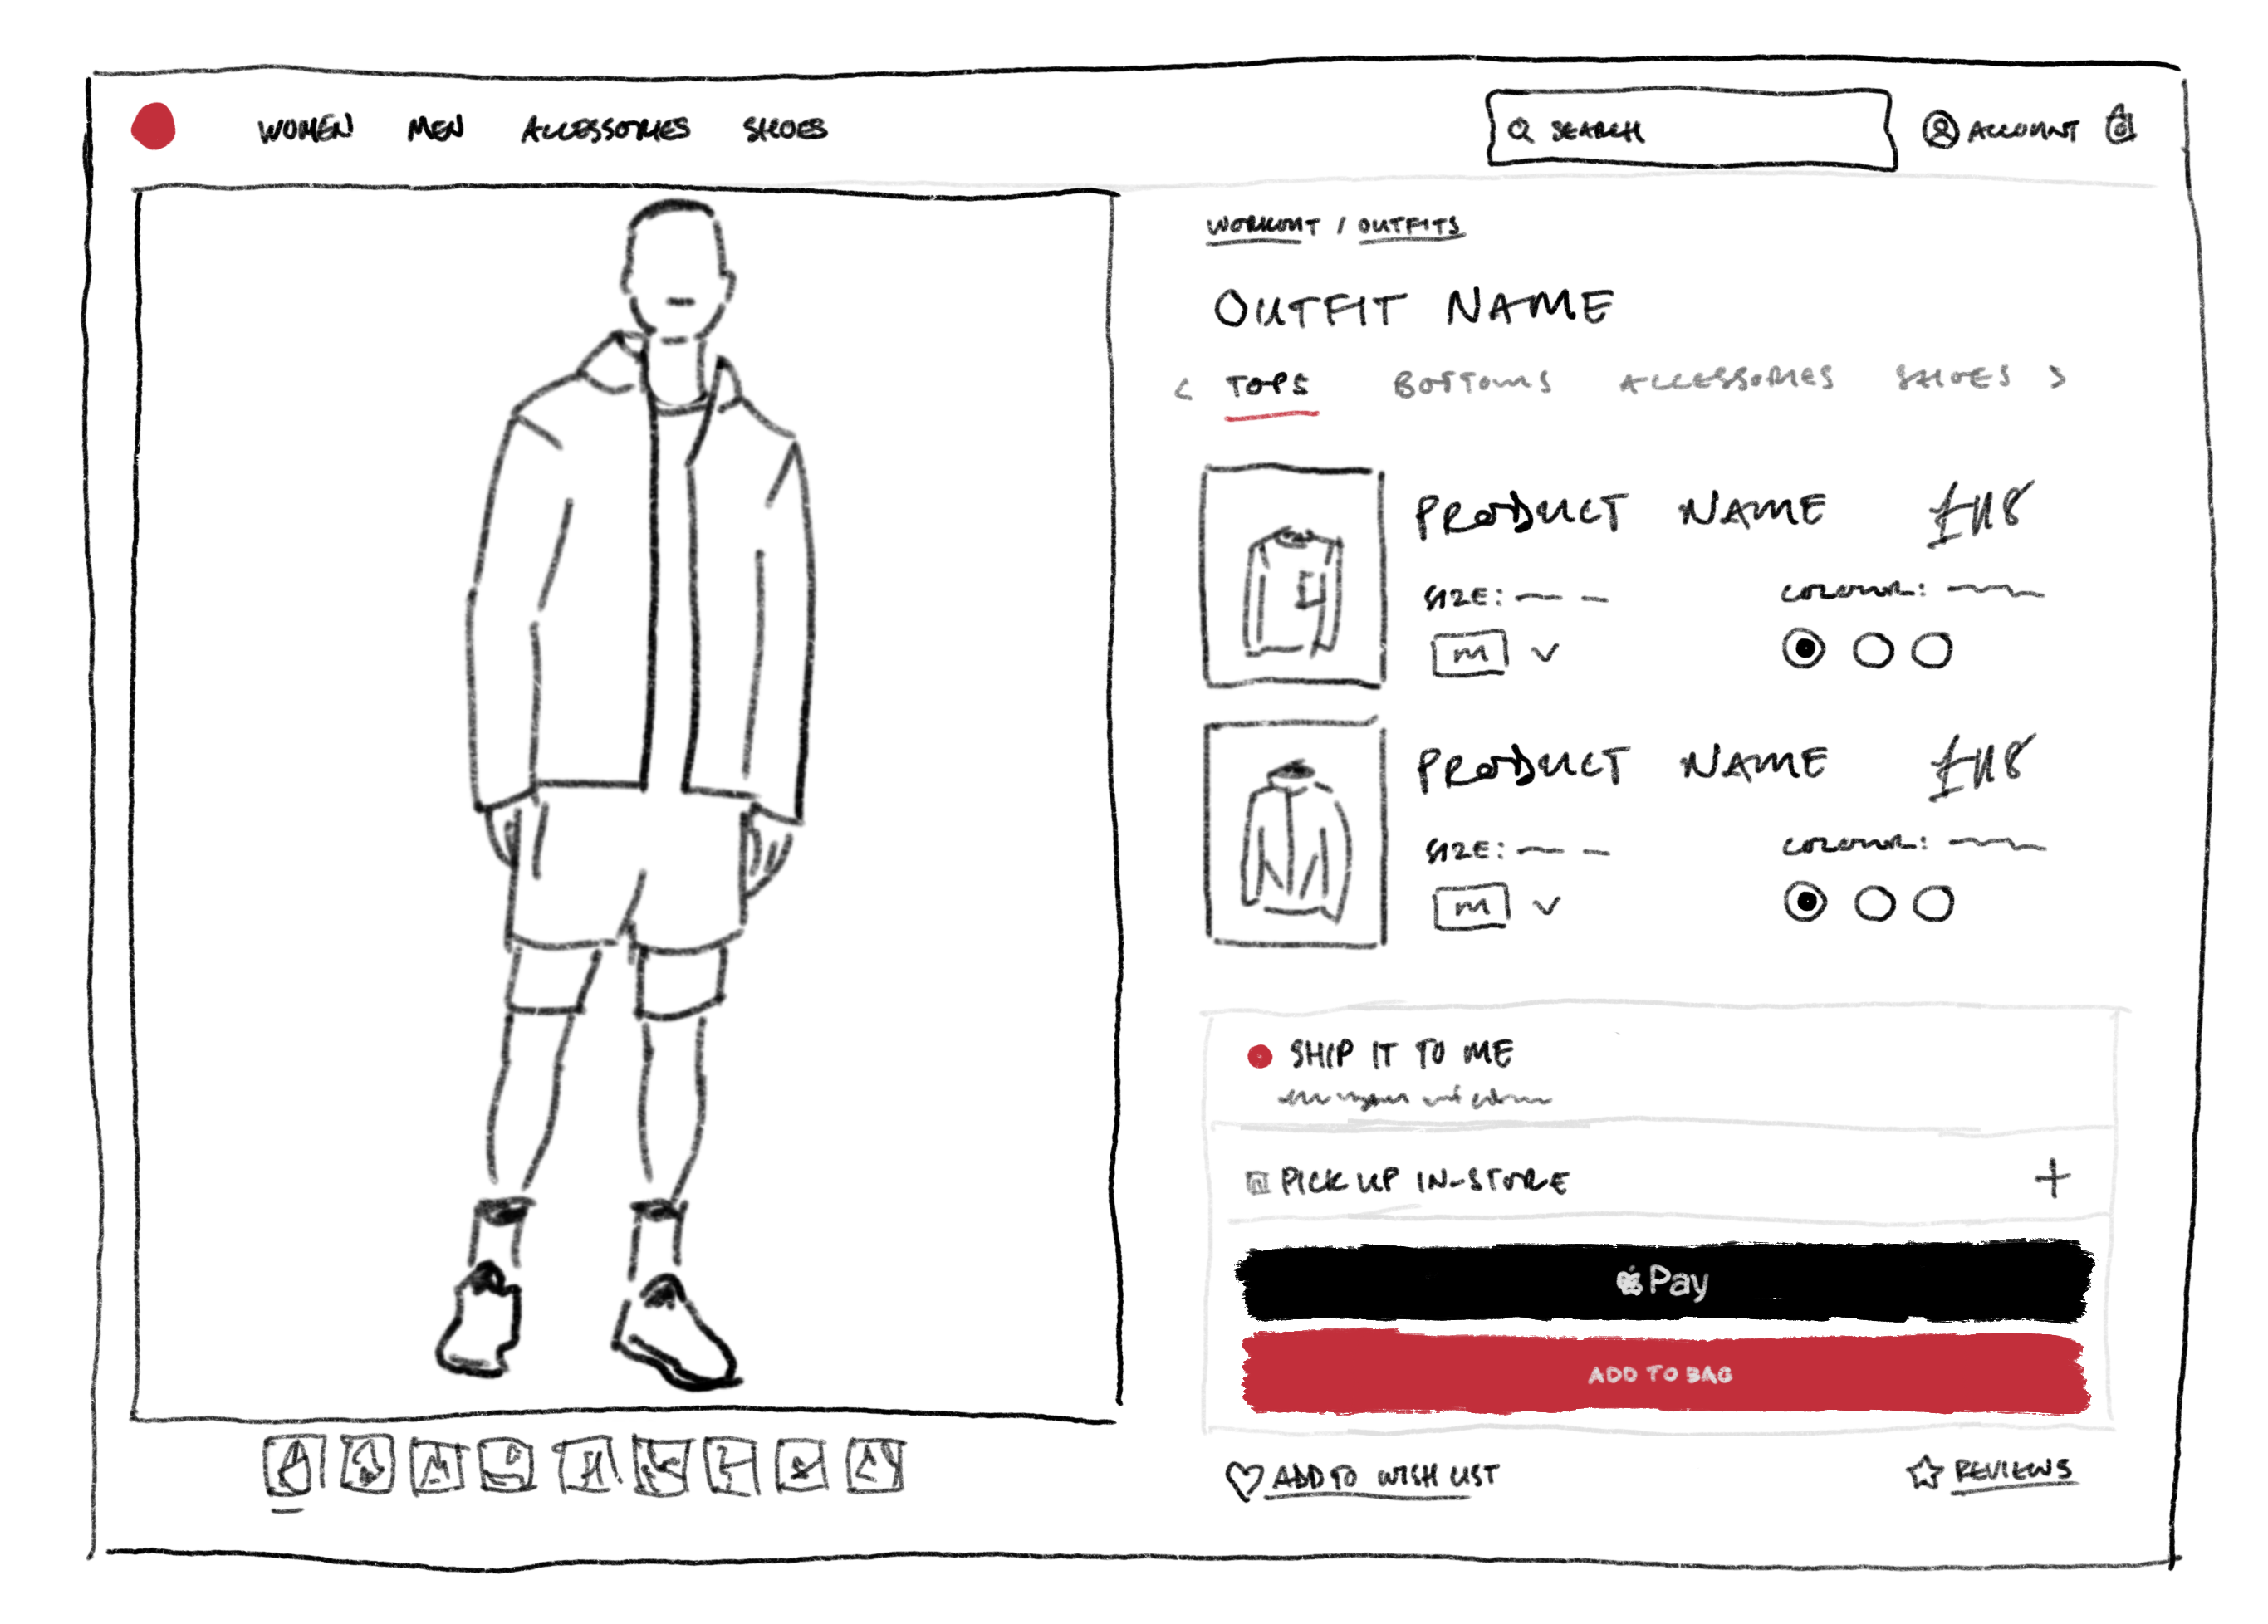 WOMEN MEN ACCESSORIES SHOES SEARCH ACCOUNT
WORKOUT / OUTFITS
OUTFIT NAME
< TOPS BOTTOMS ACCESSORIES SHOES >
PRODUCT NAME £118
SIZE: COLOUR:
M
PRODUCT NAME £118
SIZE: COLOUR:
M
SHIP IT TO ME
PICK UP IN-STORE +
Pay
ADD TO BAG
ADD TO WISH LIST REVIEWS